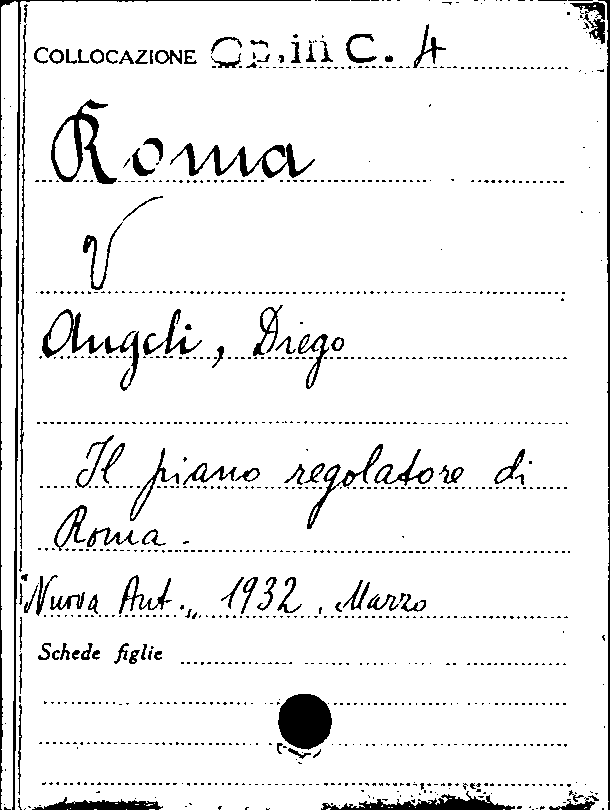 COLLOCAZIONE Op. in C. 4
Roma
V
Angeli, Diego
Il piano regolatore di
Roma.
"Nuova Ant.„ 1932, Marzo
Schede figlie